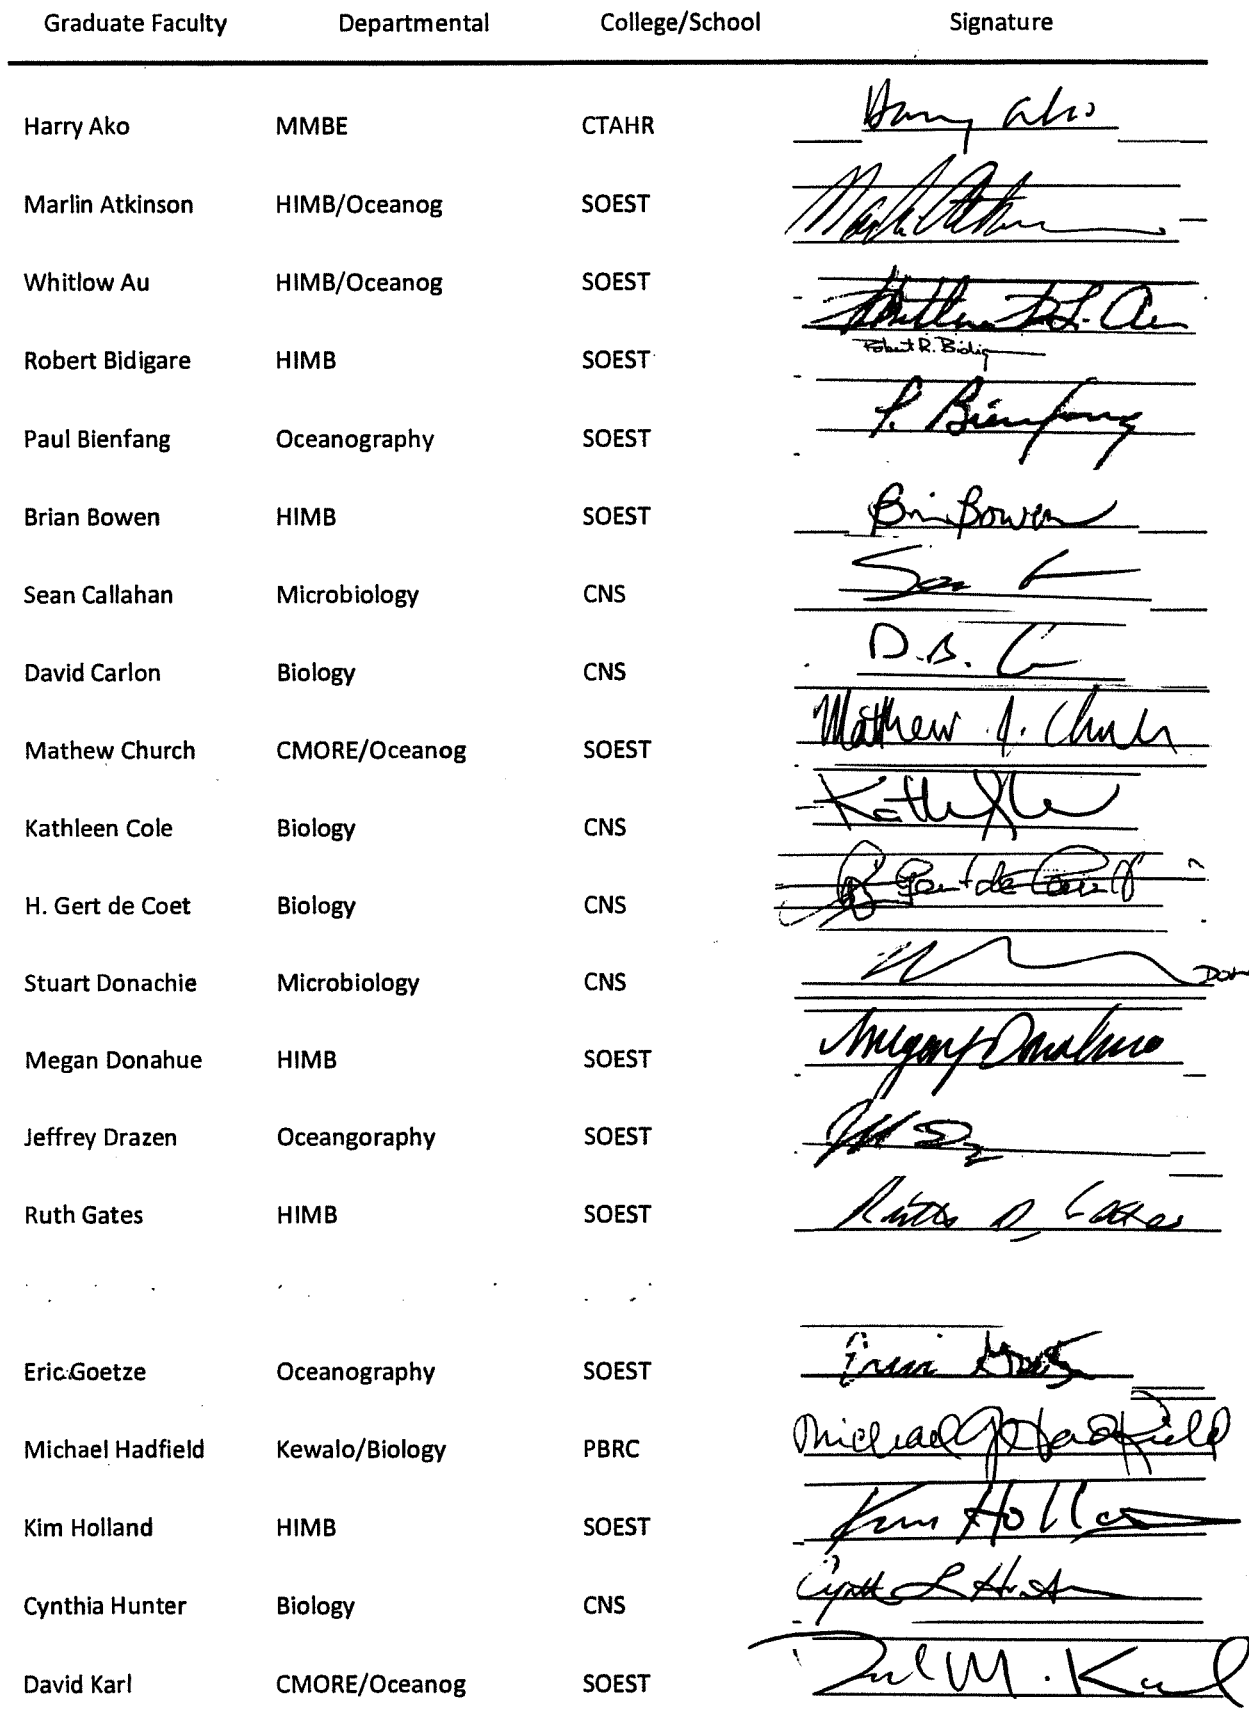 Graduate Faculty Departmental College/School Signature
Harry Ako MMBE CTAHR Harry Ako
Marlin Atkinson HIMB/Oceanog SOEST
Whitlow Au HIMB/Oceanog SOEST Whitlow W. L. Au
Robert Bidigare HIMB SOEST Robert R. Bidig
Paul Bienfang Oceanography SOEST P. Bienfang
Brian Bowen HIMB SOEST Brian Bowen
Sean Callahan Microbiology CNS Sean
David Carlon Biology CNS D.B. C
Mathew Church CMORE/Oceanog SOEST Matthew J. Church
Kathleen Cole Biology CNS
H. Gert de Coet Biology CNS H. Gert de Couet
Stuart Donachie Microbiology CNS DON
Megan Donahue HIMB SOEST Donahue
Jeffrey Drazen Oceangoraphy SOEST
Ruth Gates HIMB SOEST Ruth D. Gates
Eric Goetze Oceanography SOEST Erica Goetze
Michael Hadfield Kewalo/Biology PBRC Michael G Hadfield
Kim Holland HIMB SOEST Kim Holland
Cynthia Hunter Biology CNS Cynth L Hunter
David Karl CMORE/Oceanog SOEST David M. Karl